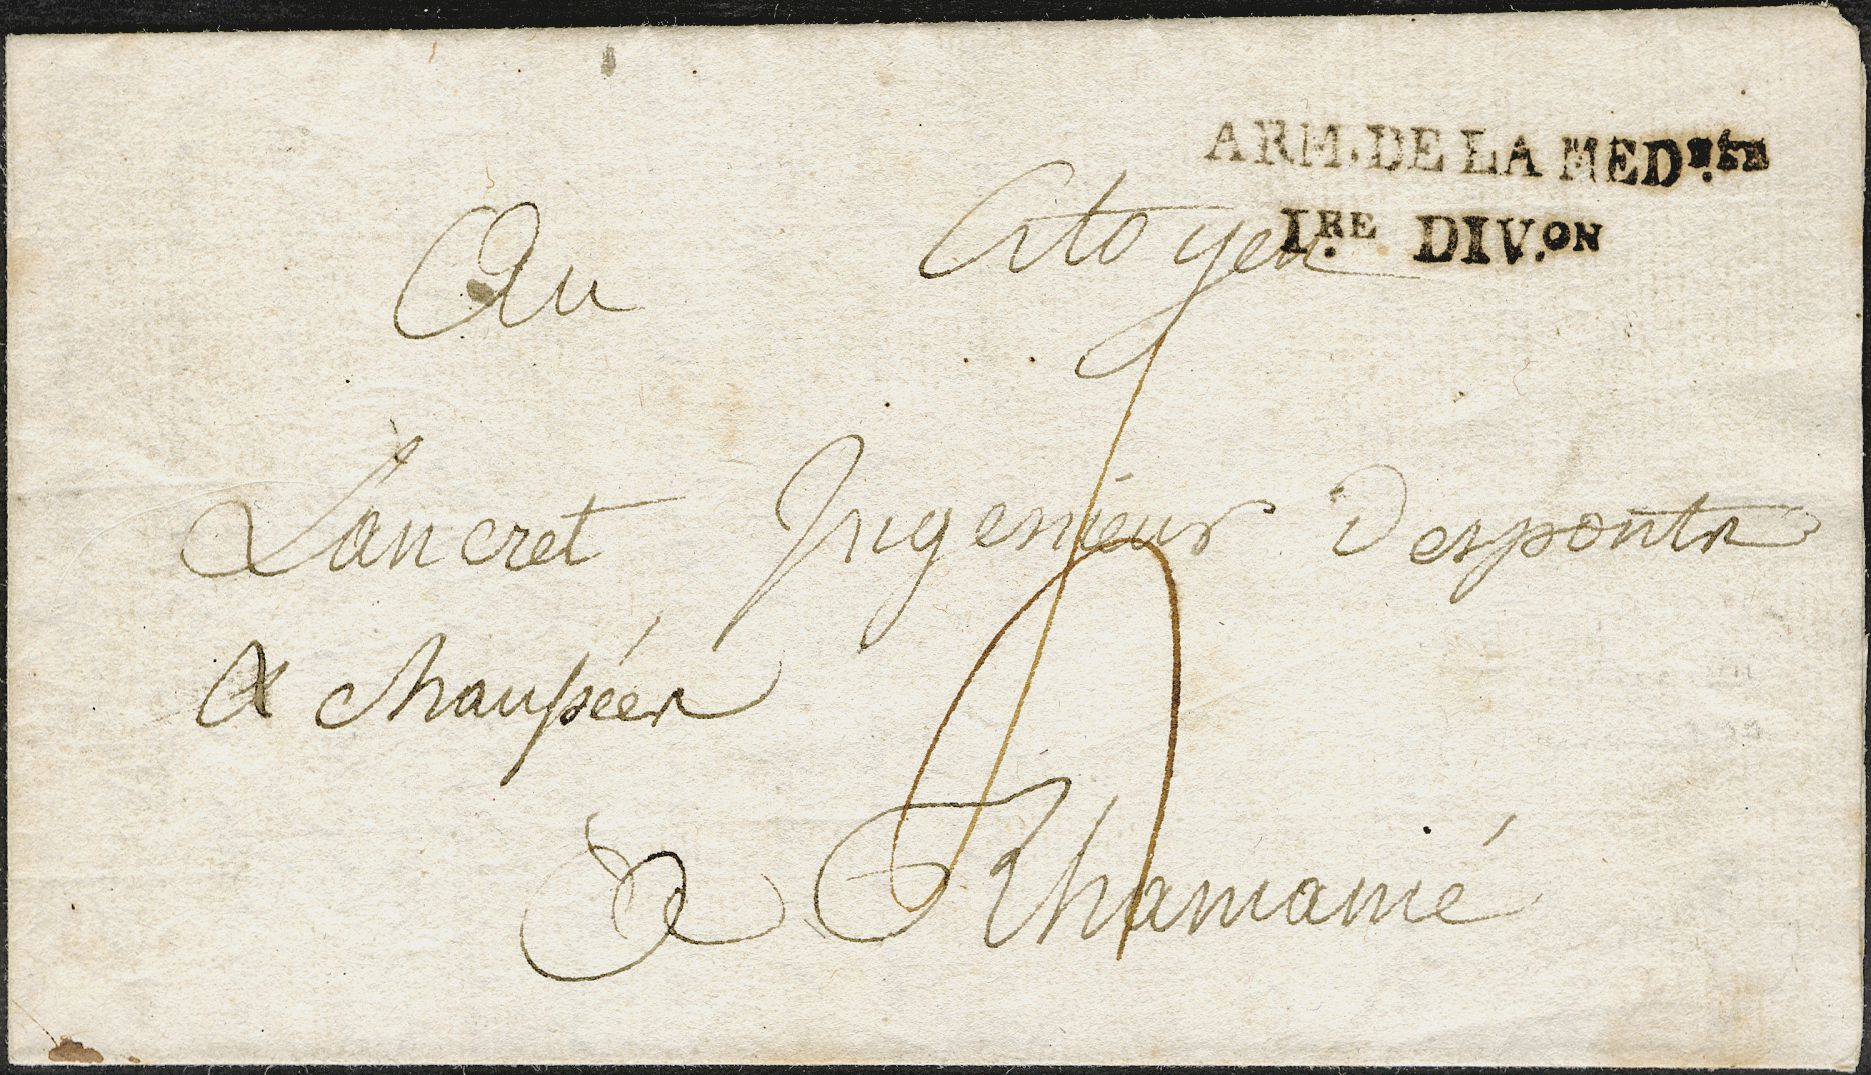 ARM. DE LA MED.
I.RE DIV.ON
Au Citoyen
Lancret Ingenieur Desponts
& chaussées
a Rhamanié